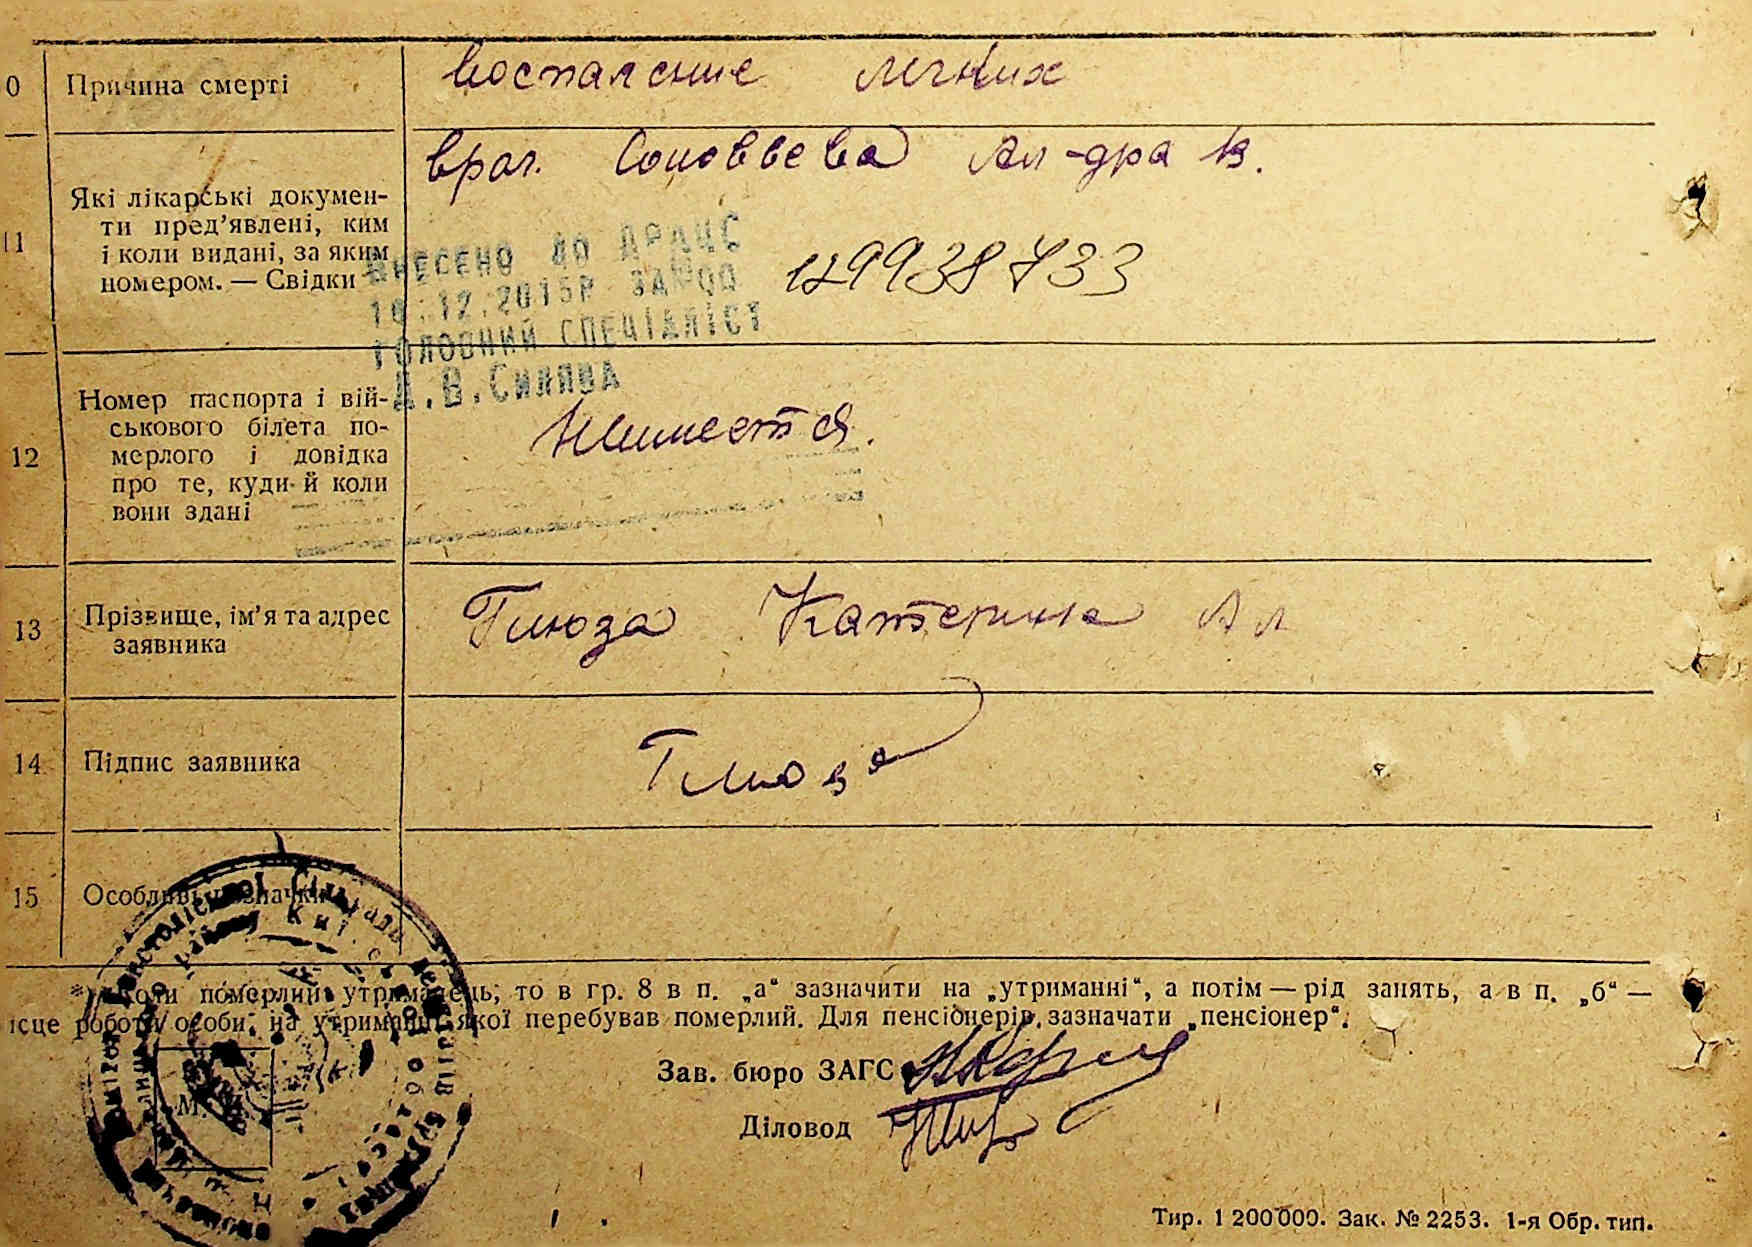 0 Причина смерті
воспаление легких
врач. Соловьева Ал-дра В.
11 Які лікарські докумен-
ти пред'явлені, ким
і коли видані, за яким
номером. — Свідки
ВНЕСЕНО ДО ДРАЦС
12.2015Р
ГОЛОВНИЙ СПЕЦІАЛІСТ
Д.В.
12 Номер паспорта і вій-
ськового білета по-
мерлого і довідка
про те, куди й коли
вони здані
Неимеется.
13 Прізвище, ім'я та адрес
заявника
Глюза Катерина Ал
14 Підпис заявника
Глюза
15 Особливі значки
*) Коли померлий утриманець, то в гр. 8 в п. „а“ зазначити на „утриманні“, а потім — рід занять, а в п. „б“ —
ісце роботи особи, на утриманні якої перебував померлий. Для пенсіонерів зазначати „пенсіонер“.
Зав. бюро ЗАГС
Діловод
Тир. 1 200 000. Зак. № 2253. 1-я Обр. тип.